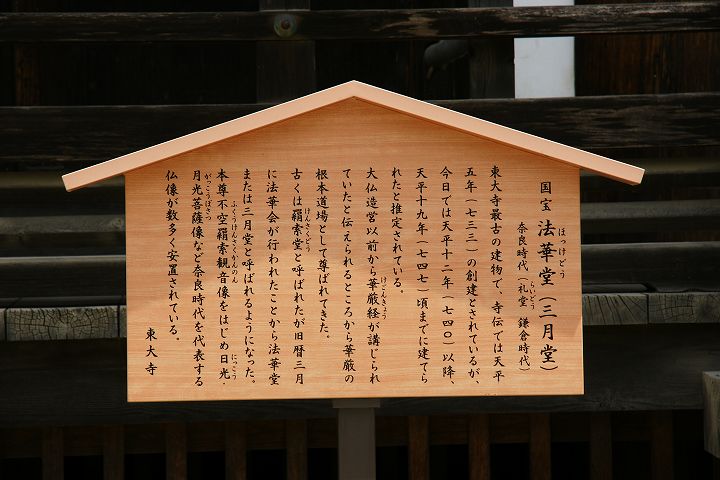 国宝 法華堂（三月堂）
ほっけどう
奈良時代（礼堂 鎌倉時代）
らいどう
東大寺最古の建物で、寺伝では天平
五年（七三三）の創建とされているが、
今日では天平十二年（七四〇）以降、
天平十九年（七四七）頃までに建てら
れたと推定されている。
大仏造営以前から華厳経が講じられ
けごんきょう
ていたと伝えられるところから華厳の
根本道場として尊ばれてきた。
古くは羂索堂と呼ばれたが旧暦三月
けんさくどう
に法華会が行われたことから法華堂
または三月堂と呼ばれるようになった。
本尊不空羂索観音像をはじめ日光・
ふくうけんさくかんのん
にっこう
月光菩薩像など奈良時代を代表する
がっこうぼさつ
仏像が数多く安置されている。
東大寺